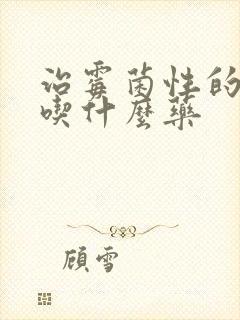 治霉菌性的
喫什麼藥
顾雪